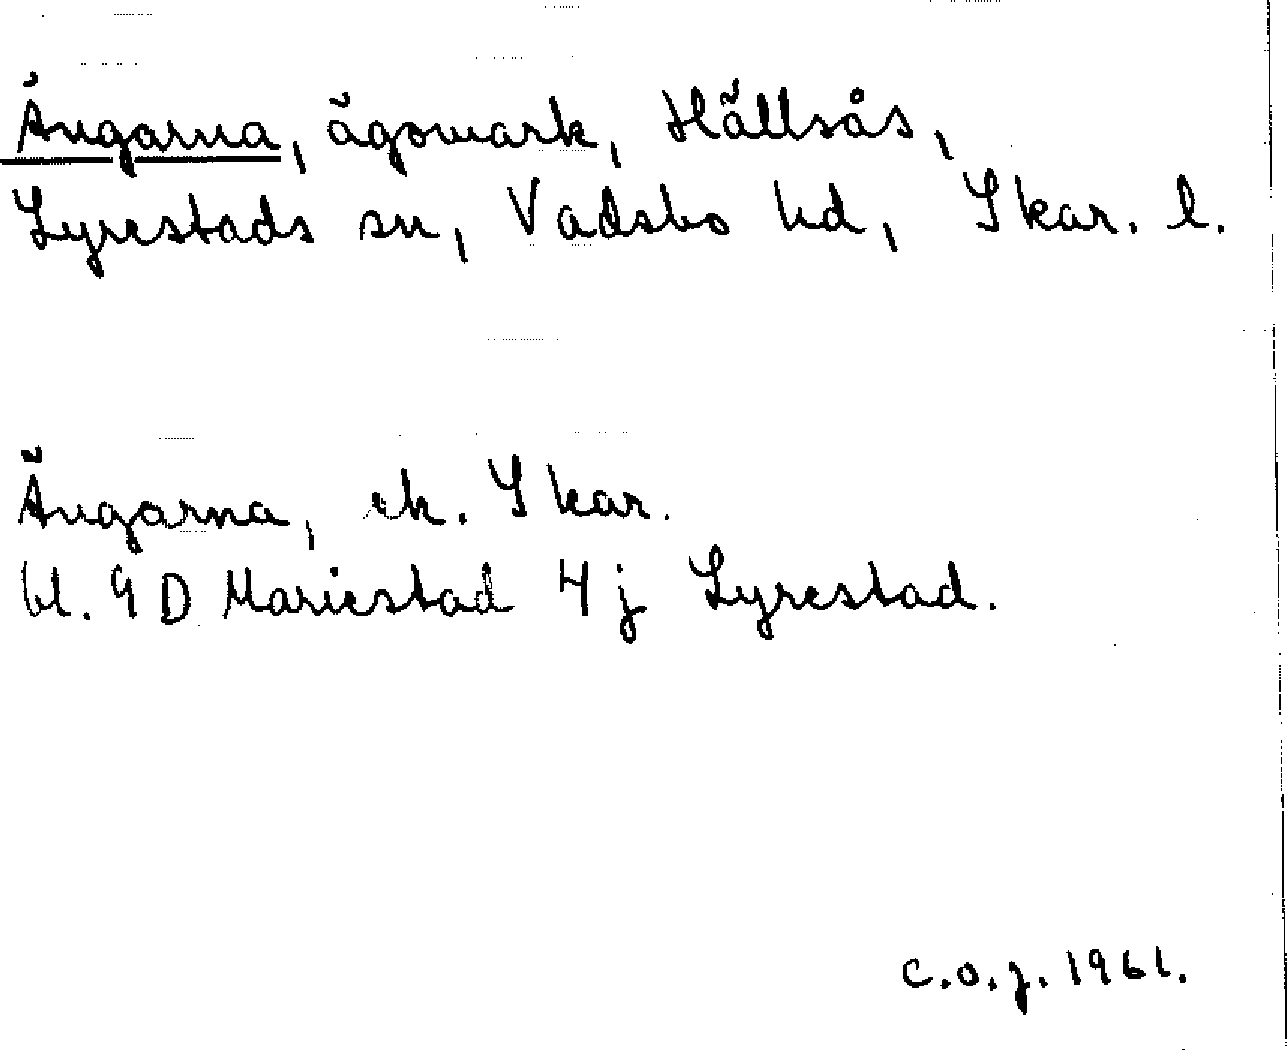 Ängarna, ägomark, Hällsås,
Lyrestads sn, Vadsbo hd, Skar. l.
Ängarna, ek. Skar.
bl. 9 D Mariestad 4 j Lyrestad.
C.O.J. 1961.